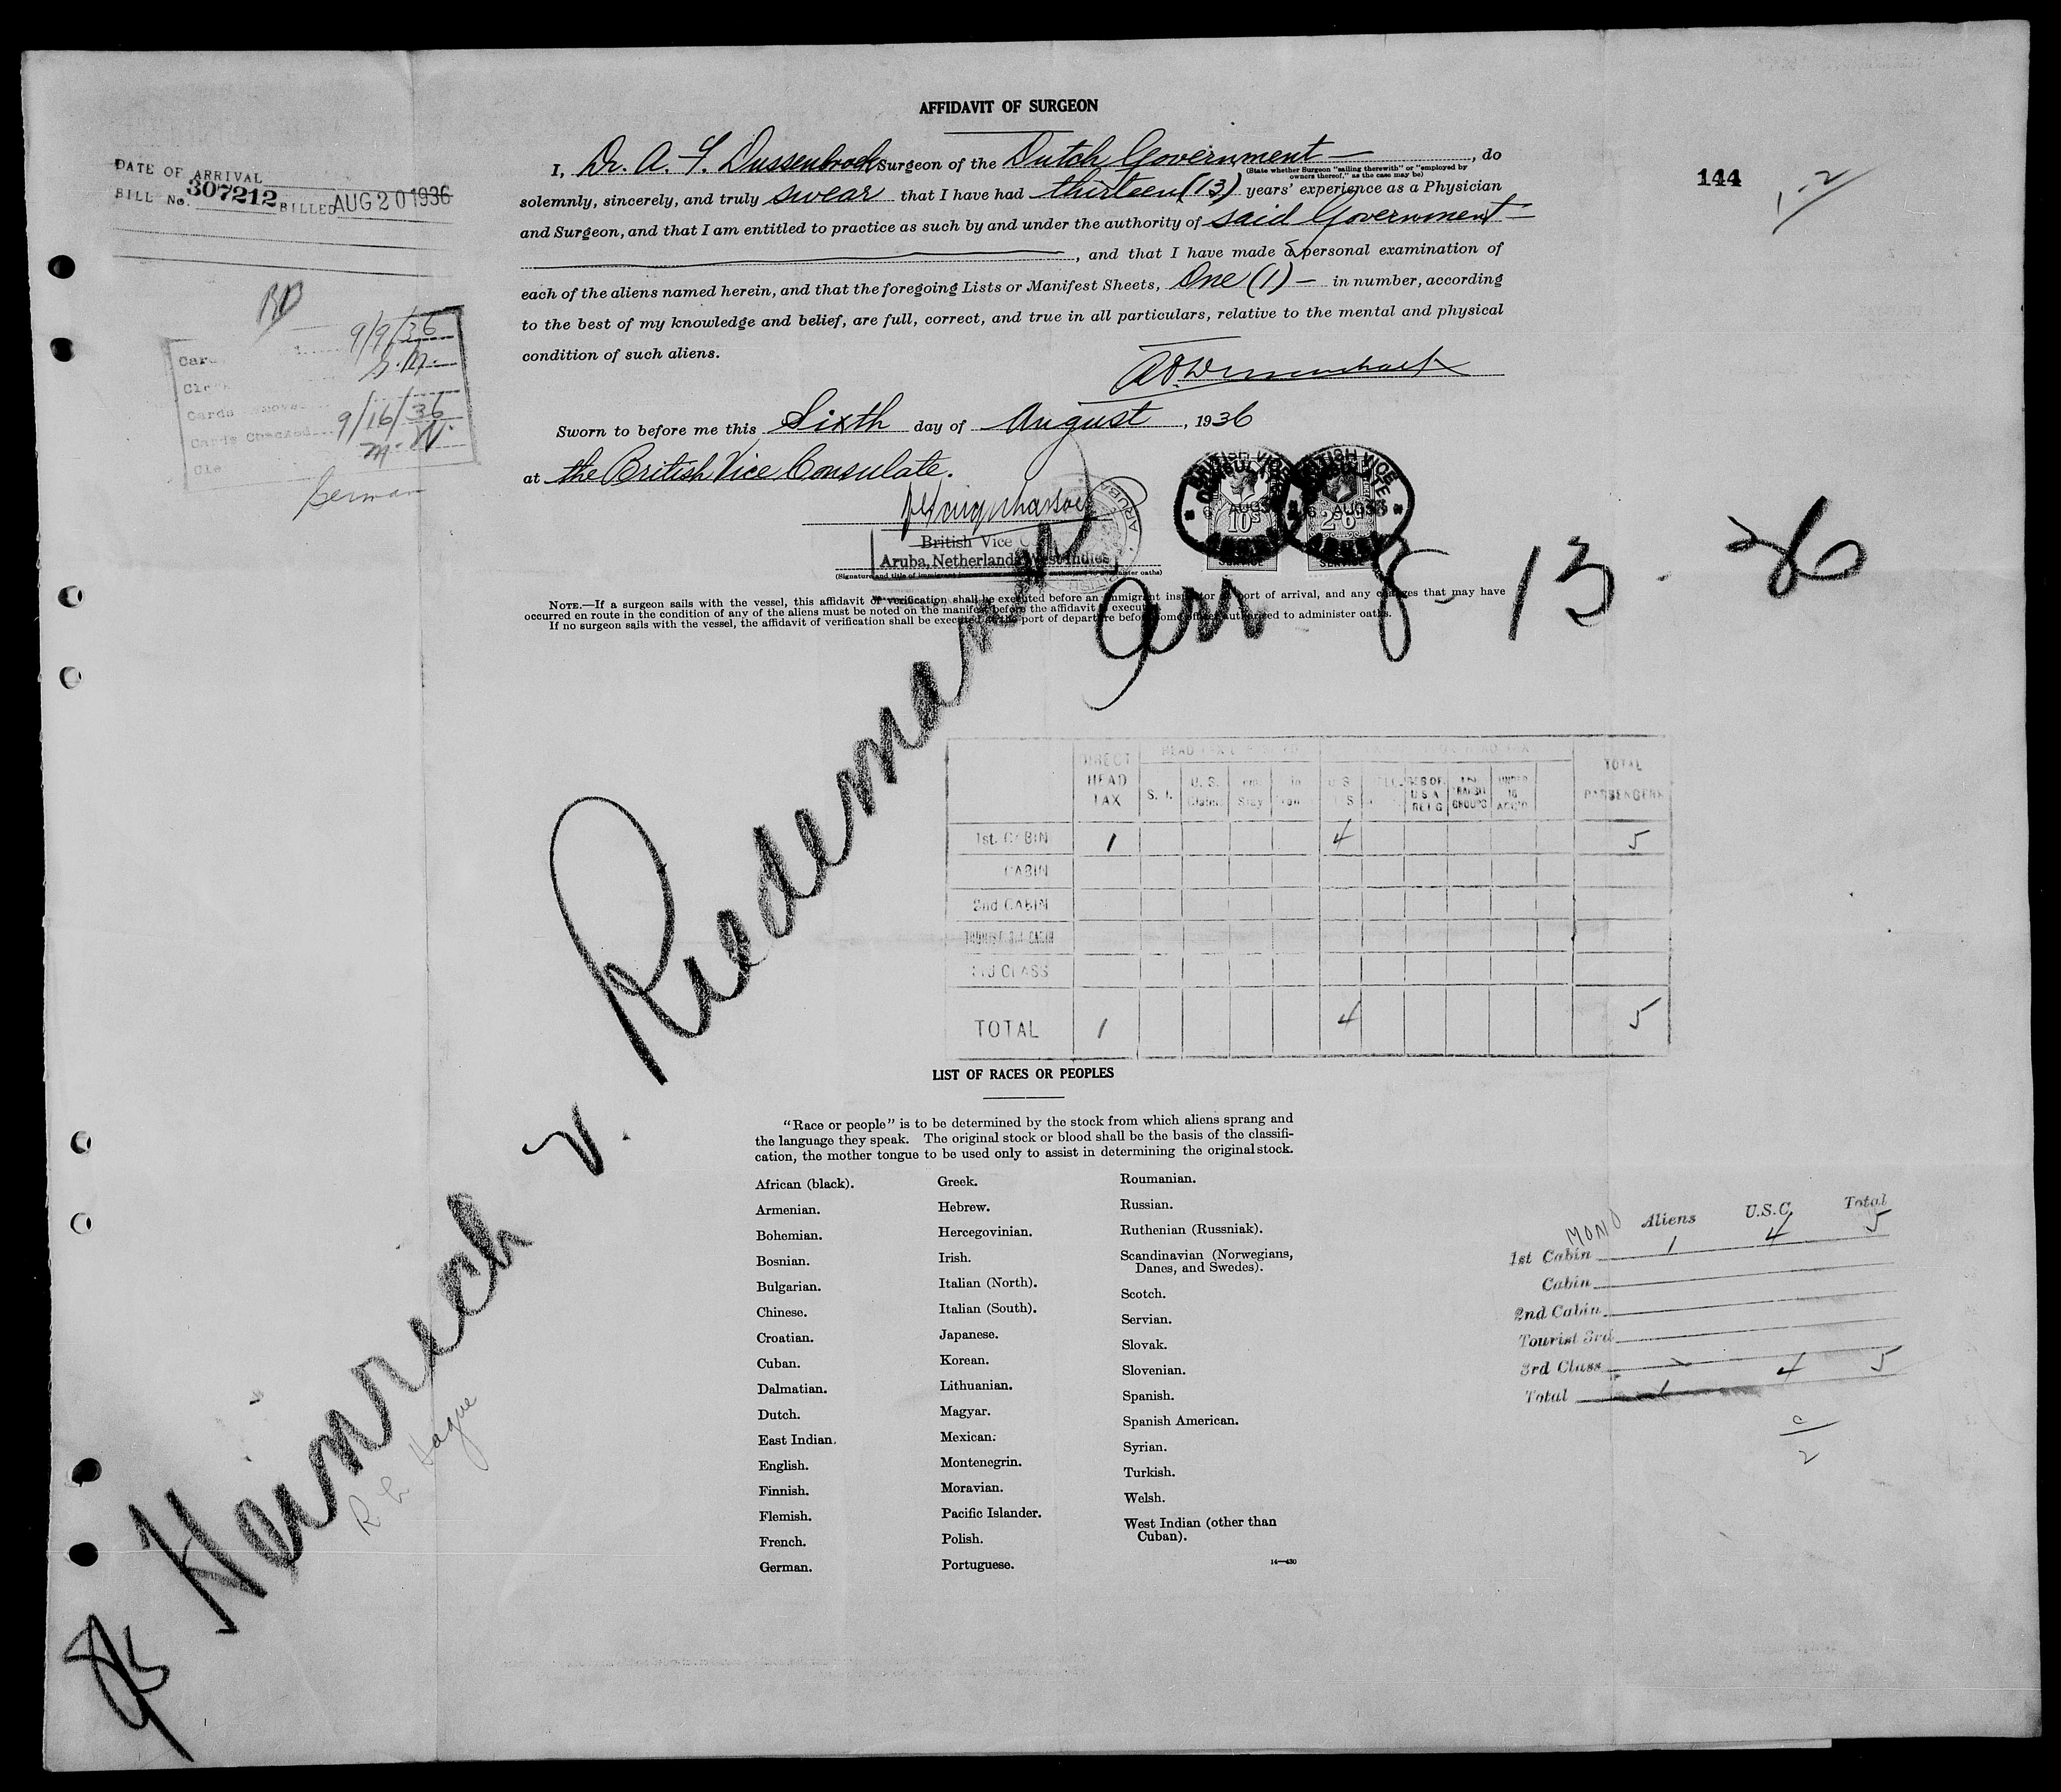 AFFIDAVIT OF SURGEON
I, Dr. A. F. Dussenbroek Surgeon of the Dutch Government — , do
(State whether Surgeon "sailing therewith" or "employed by
owners thereof," as the case may be)
solemnly, sincerely, and truly swear that I have had thirteen (13) years' experience as a Physician
and Surgeon, and that I am entitled to practice as such by and under the authority of said Government —
, and that I have made a personal examination of
each of the aliens named herein, and that the foregoing Lists or Manifest Sheets, One (1) — in number, according
to the best of my knowledge and belief, are full, correct, and true in all particulars, relative to the mental and physical
condition of such aliens.
Sworn to before me this Sixth day of August, 1936
at the British Vice Consulate.
British Vice
Aruba, Netherlands West Indies
144
1-2
DATE OF ARRIVAL
BILL No. 307212 BILLED AUG 20 1936
9/9/36
S.M.
Cards
9/16/36
Cards Checked
M.W.
German
BRITISH VICE
6 AUG 36
10s
2s6
ARUBA
SERVICE
SERVICE
NOTE.—If a surgeon sails with the vessel, this affidavit of verification shall be executed before an immigrant inspector port of arrival, and any changes that may have
occurred en route in the condition of any of the aliens must be noted on the manifest before the affidavit execut
If no surgeon sails with the vessel, the affidavit of verification shall be executed at the port of departure before some officer authorized to administer oaths.
Arr 8-13-36
SS Heinrich v. Riedemann
R G Hague
DIRECT HEAD TAX
S. I.
U. S.
TOTAL PASSENGERS
1st. CABIN 1 4 5
CABIN
2nd CABIN
TOURIST 3rd CABIN
3rd CLASS
TOTAL 1 4 5
LIST OF RACES OR PEOPLES
"Race or people" is to be determined by the stock from which aliens sprang and
the language they speak. The original stock or blood shall be the basis of the classifi-
cation, the mother tongue to be used only to assist in determining the original stock.
African (black).
Armenian.
Bohemian.
Bosnian.
Bulgarian.
Chinese.
Croatian.
Cuban.
Dalmatian.
Dutch.
East Indian.
English.
Finnish.
Flemish.
French.
German.
Greek.
Hebrew.
Hercegovinian.
Irish.
Italian (North).
Italian (South).
Japanese.
Korean.
Lithuanian.
Magyar.
Mexican.
Montenegrin.
Moravian.
Pacific Islander.
Polish.
Portuguese.
Roumanian.
Russian.
Ruthenian (Russniak).
Scandinavian (Norwegians,
Danes, and Swedes).
Scotch.
Servian.
Slovak.
Slovenian.
Spanish.
Spanish American.
Syrian.
Turkish.
Welsh.
West Indian (other than
Cuban).
14—430
Aliens U.S.C. Total
1st Cabin 1 4 5
Cabin
2nd Cabin
Tourist 3rd
3rd Class 4 5
Total 1